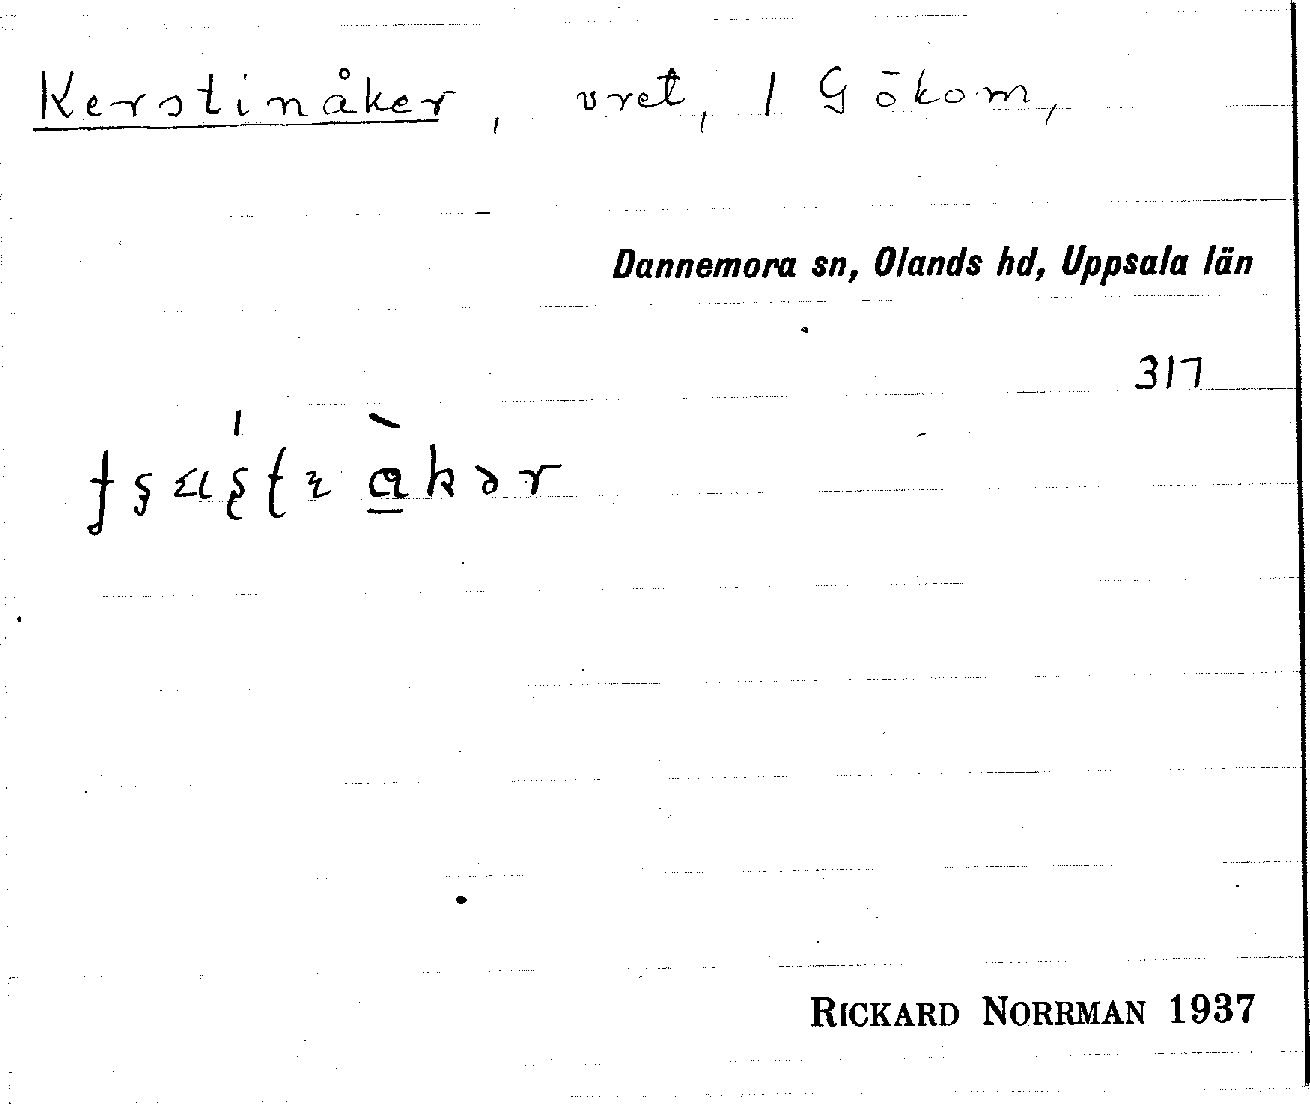 Kerstinåker, vret, 1 Gökom,
Dannemora sn, Olands hd, Uppsala län
317
RICKARD NORRMAN 1937